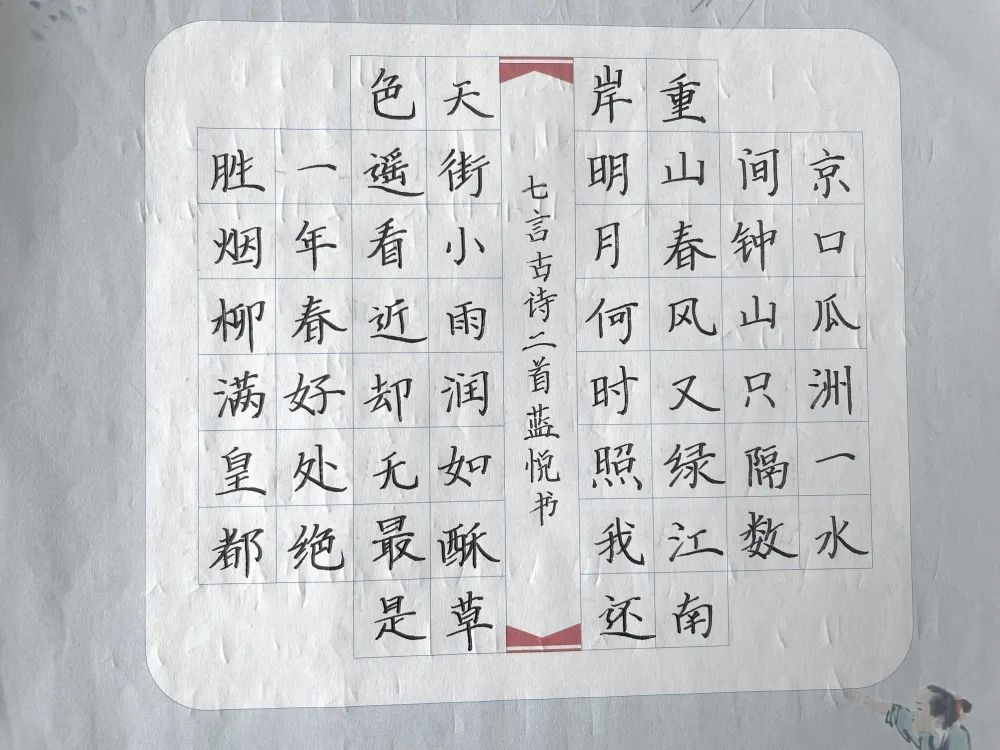 京口瓜洲一水
间钟山只隔数
重山春风又绿江南
岸明月何时照我还
七言古诗二首蓝悦书
天街小雨润如酥草
色遥看近却无最是
一年春好处绝
胜烟柳满皇都